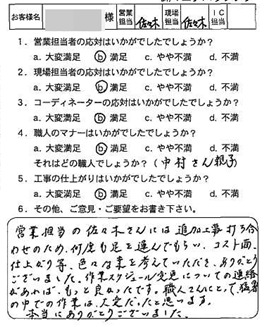 お客様名 様 営業担当 佐々木 現場担当 佐々木 IC担当
1．営業担当者の応対はいかがでしたでしょうか？
a. 大変満足 b 満足 c. やや不満 d. 不満
2．現場担当者の応対はいかがでしたでしょうか？
a. 大変満足 b 満足 c. やや不満 d. 不満
3．コーディネーターの応対はいかがでしたでしょうか？
a. 大変満足 b 満足 c. やや不満 d. 不満
4．職人のマナーはいかがでしたでしょうか？
a. 大変満足 b 満足 c. やや不満 d. 不満
それはどの職人でしょうか？（中村さん親子）
5．工事の仕上がりはいかがでしたでしょうか？
a. 大変満足 b 満足 c. やや不満 d. 不満
6．その他、ご意見・ご要望をお書き下さい。
営業担当の佐々木さんには追加工事打ち合
わせのため、何度も足を運んでもらい、コスト面、
仕上がり等、色々な案を考えていただき、ありがとう
ございました。作業スケジュール変更についての連絡
があれば、もっと良かったです。職人さんにとって猛暑
の中での作業は、大変だったと思います。
本当にありがとうございました。